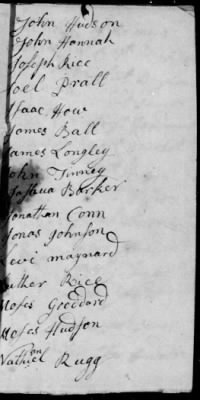 John Hudson
John Hannah
Joseph Rice
Joel Prall
Isaac How
James Ball
James Longley
John Tinney
Joshua Barker
Jonathan Conn
Jonas Johnson
Levi maynard
Luther Rice
Moses Goddard
Moses Hudson
Nathaniel Rugg